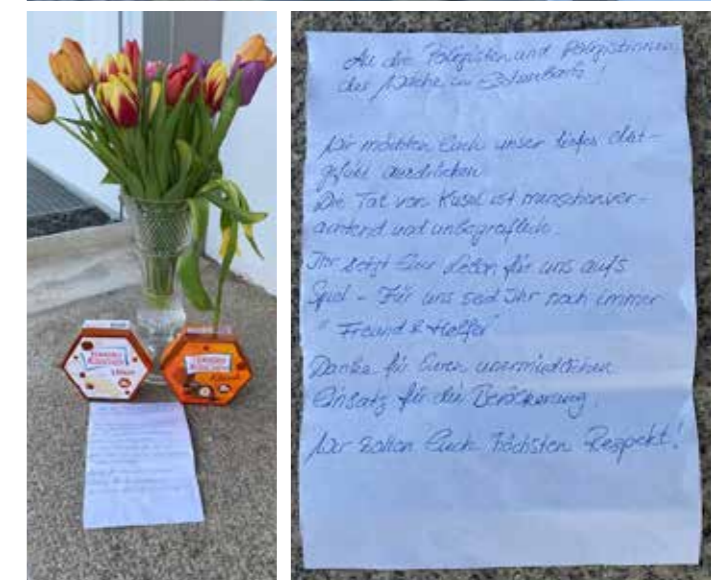 FERRERO
KÜSSCHEN
FERRERO
KÜSSCHEN
An die Polizisten und Polizistinnen
der Wache in
Wir möchten Euch unser tiefes Mit-
gefühl ausdrücken
Die Tat von Kusel ist menschenver-
achtend und unbegreiflich.
Ihr setzt Euer Leben für uns aufs
Spiel - Für uns seid Ihr noch immer
"Freund & Helfer"
Danke für Euren unermüdlichen
Einsatz für die Bevölkerung.
Wir zollen Euch höchsten Respekt!